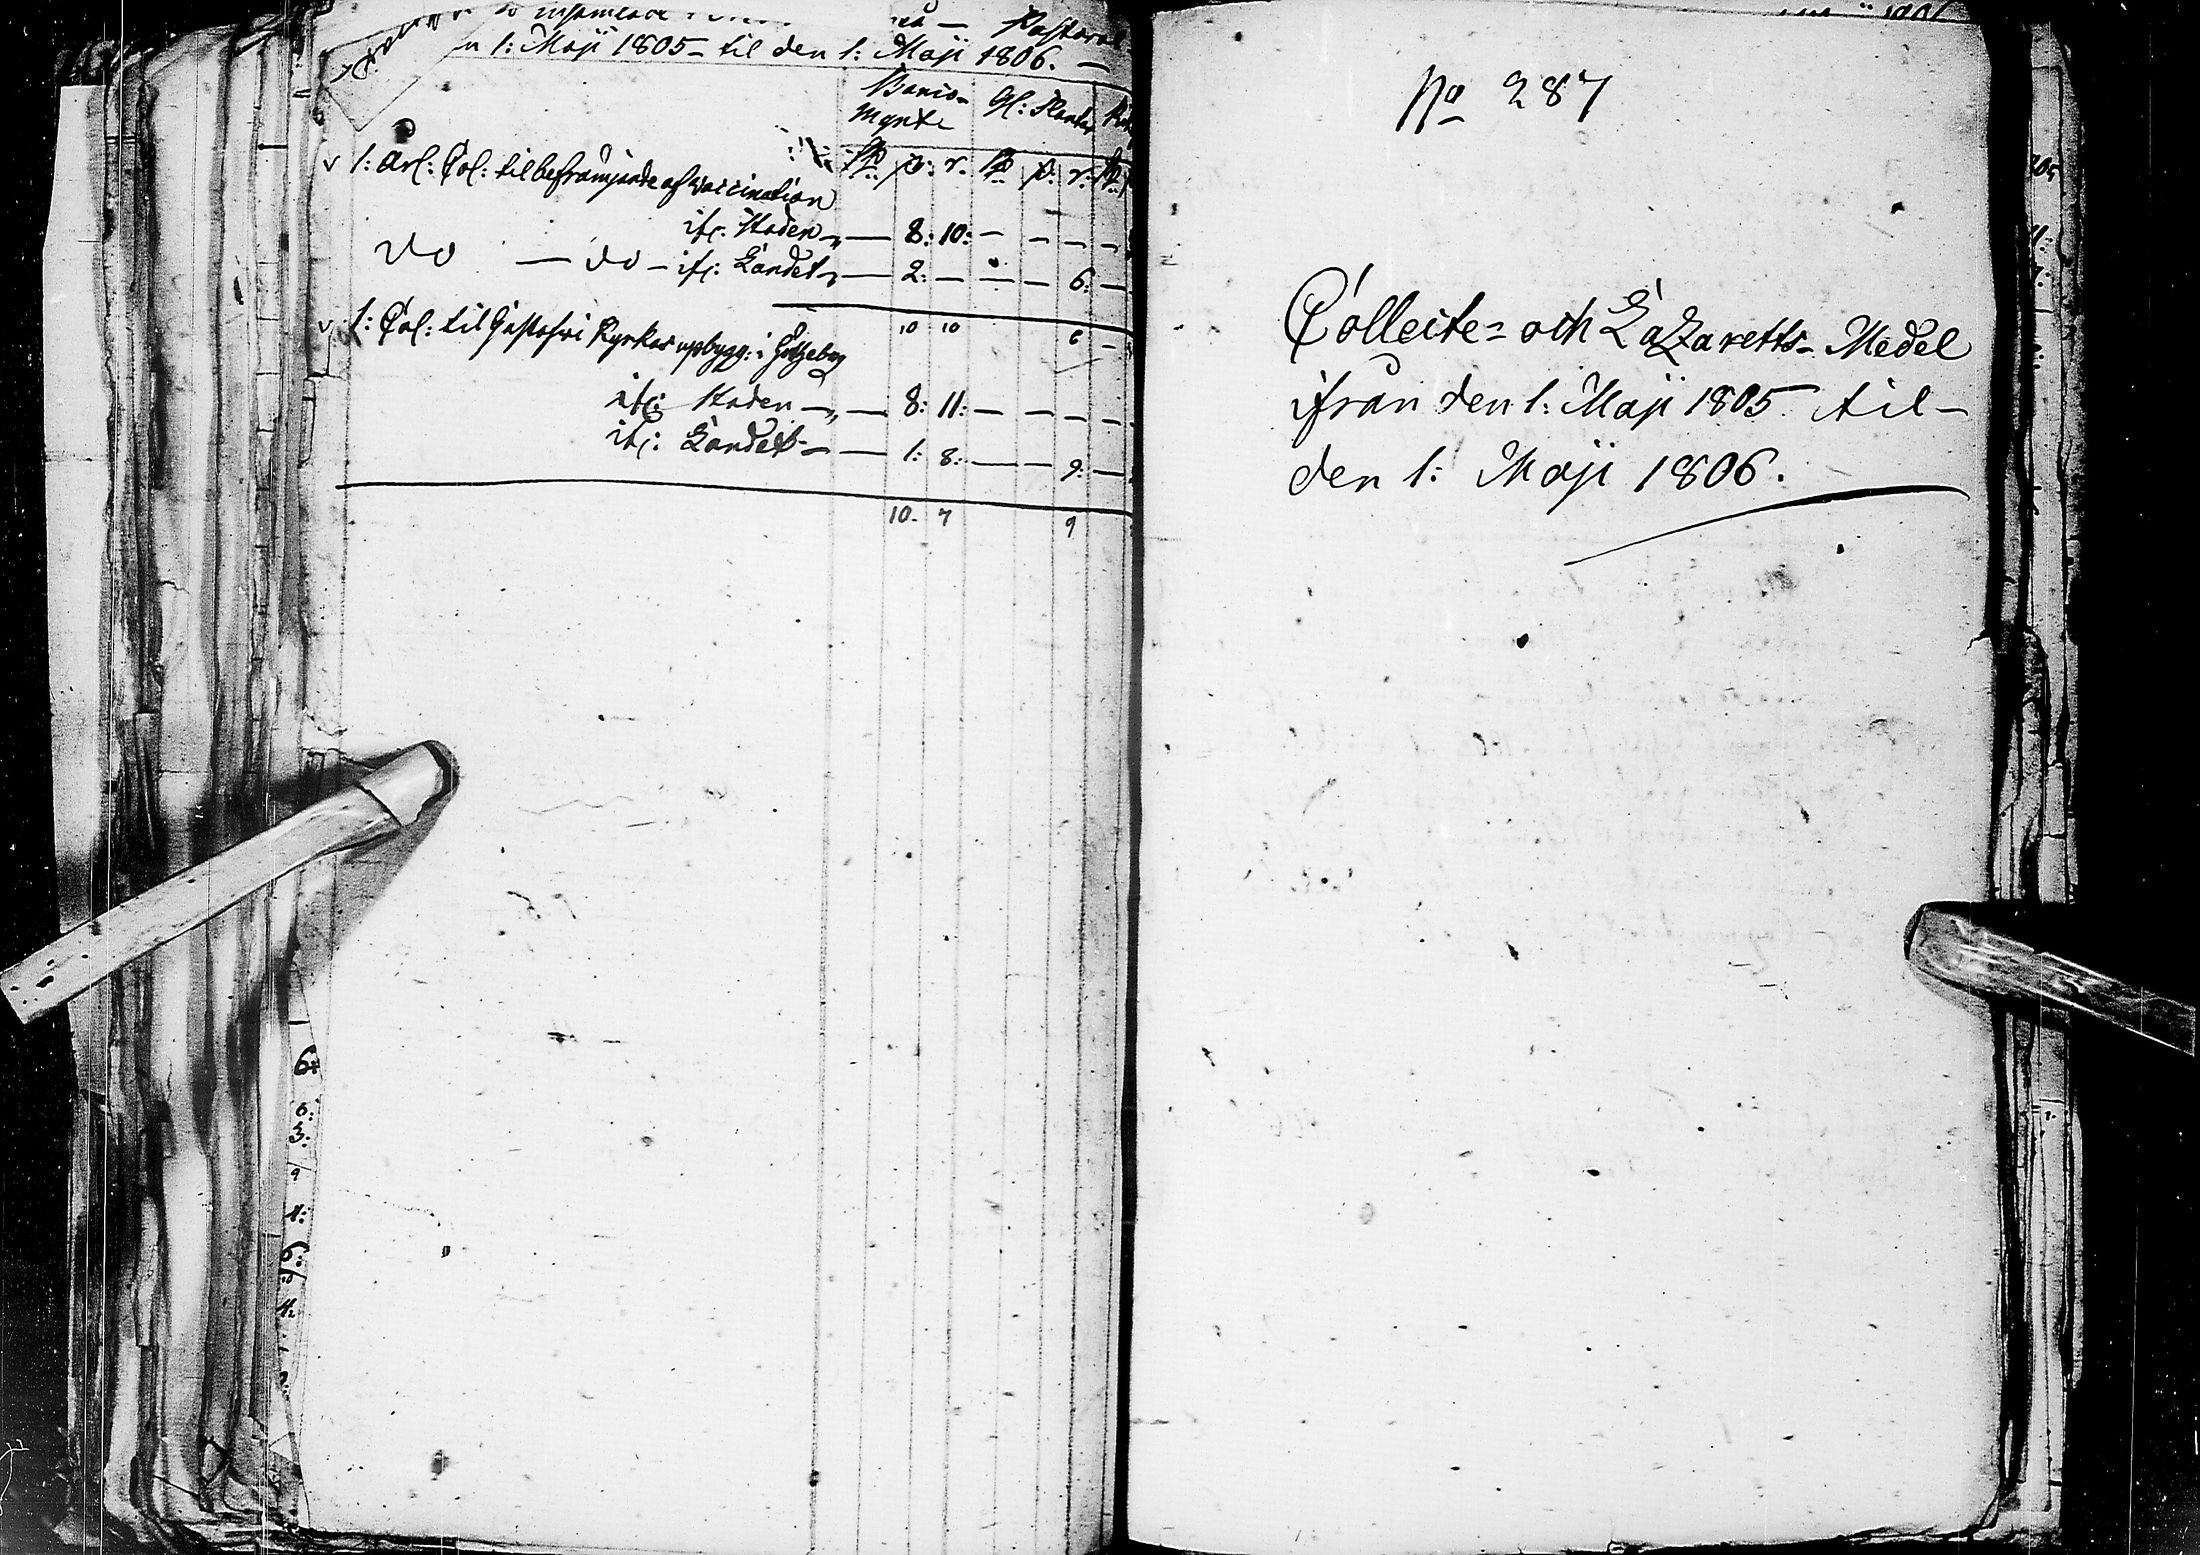 insamlade Pastorat
n 1: Maji 1805 – til den 1: Maji 1806. –
Banco- Gl: Slanter
Mynt
1: Årl: Col: til befrämjande af Vaccination
ifr: Staden – 8: 10: – – – –
Do – do – ifr: Landet – 2: – – – 6: –
10 10 6 –
1: Col: til Gustafvi Kyrkas upbygg: i Götheborg
ifr: Staden – 8: 11: – – – –
ifr: Landet – 1: 8: – – 9: –
10. 7 9
No 287
Collecte- och Lazaretts- Medel
ifrån den 1: Maji 1805 til –
den 1: Maji 1806.
6:
6:
3:
9
4:
6:
4: